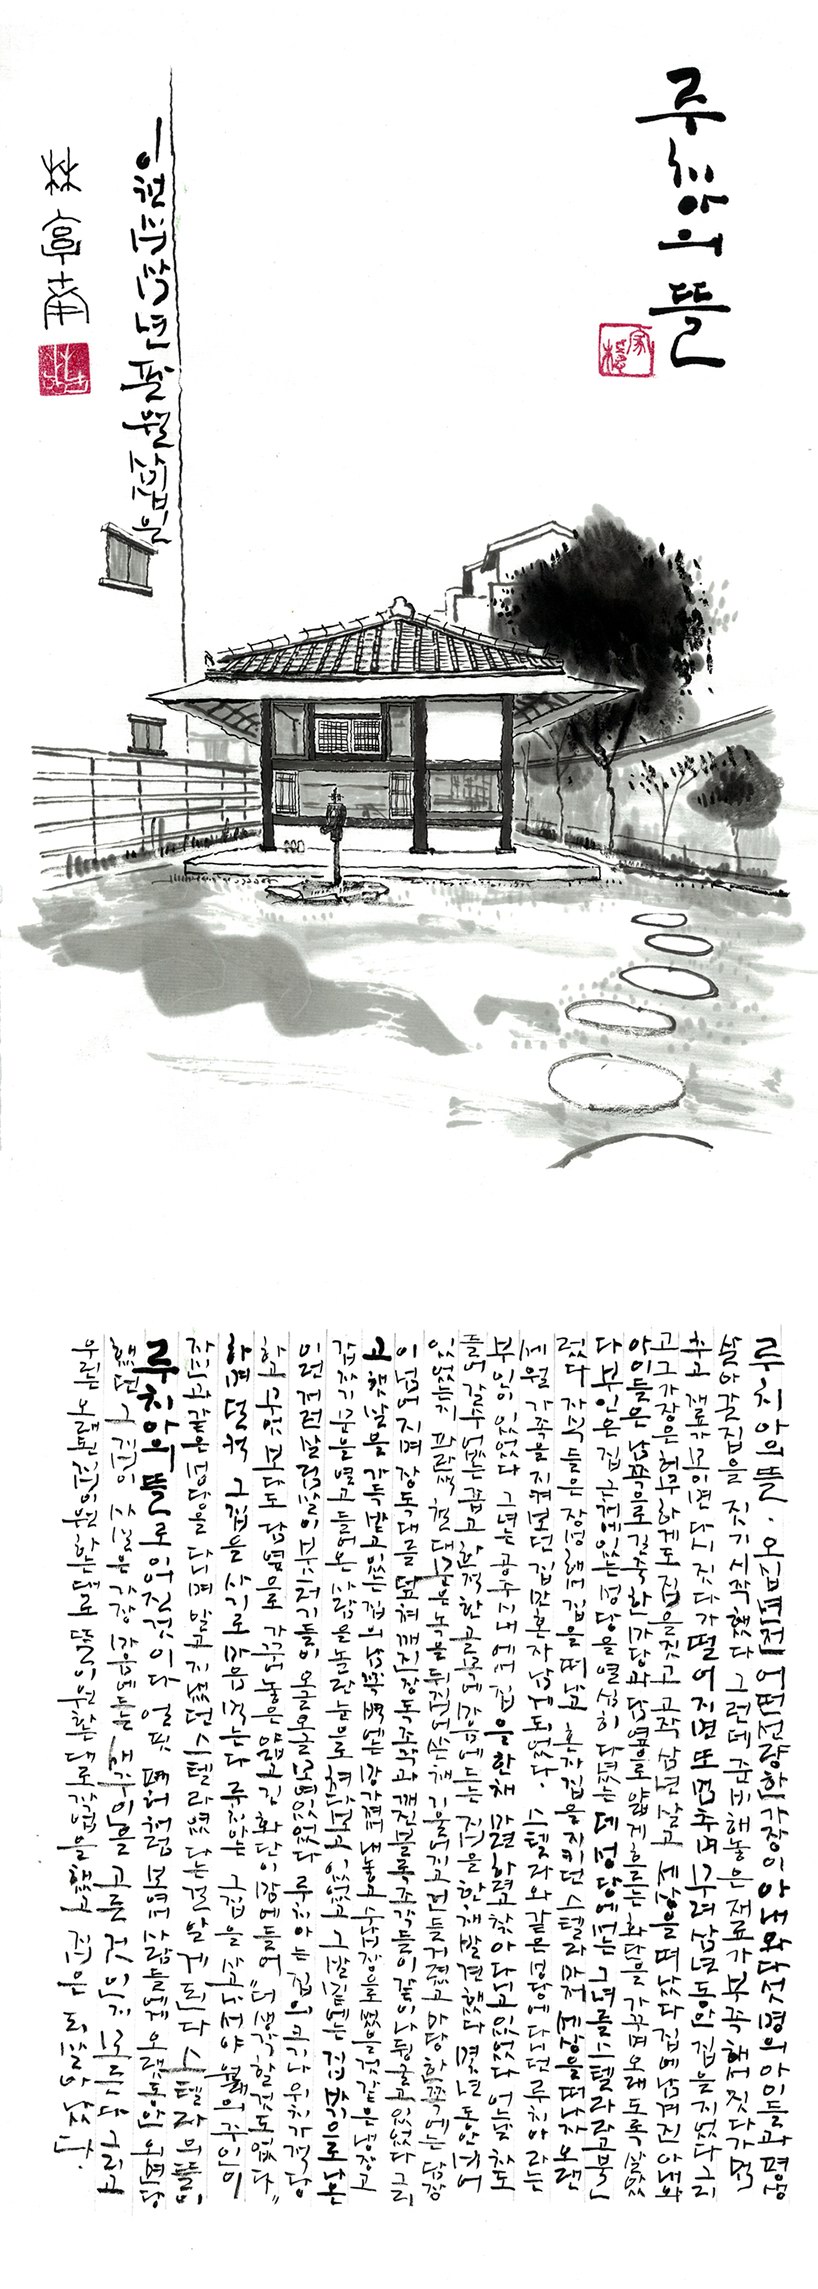 루치아의 뜰
이천십삼년 팔월
林亭南
루치아의 뜰. 오십년전 어떤 선량한 가장이 아내와 다섯명의 아이들과 평생
살아갈 집을 짓기 시작했다 그런데 준비해놓은 재료가 부족해서 짓다가 멈
추고 재료가 모이면 다시 짓다가 떨어지면 또 멈추며 무려 삼년동안 집을 지었다 그리
고 그 가장은 허무하게도 집을 짓고 고작 삼년 살고 세상을 떠났다 집에 남겨진 아내와
아이들은 남쪽으로 길죽한 마당과 담옆으로 얇게 흐르는 화단을 가꾸며 오래도록 살았
다 부인은 집 근처에 있는 성당을 열심히 다녔는데 성당에서는 그녀를 스텔라라고 불
렀다 자식들은 장성해서 집을 떠나고 혼자 집을 지키던 스텔라마저 세상을 떠나자 오랜
세월 가족을 지켜보던 집만 혼자 남게 되었다. 스텔라와 같은 성당에 다니던 루치아라는
부인이 있었다 그녀는 공주시내에서 집을 한채 마련하려고 찾아다니고 있었다 어느날 차도
들어갈수 없는 좁고 한적한 골목에 마음에 드는 집을 한채 발견했다 몇년동안 비어
있었는지 파란색 철대문은 녹을 뒤집어쓴채 기울어지고 마당 한쪽에는 담장
이 넘어지며 장독대를 덮쳐 깨진 장독조각과 깨진 블록조각들이 같이 나뒹굴고 있었다 그리
고 햇살을 가득 받고 있는 집의 남쪽벽에는 망가져 내놓고 수납장으로 썼을것 같은 냉장고
갑자기 문을 열고 들어온 사람을 놀란눈으로 쳐다보고 있었고 그 집밖으로 나온
이런저런 살림살이 부스러기들이 오글오글 모여있었다 루치아는 집의 크기나 위치가 적당
하고 무엇보다도 담옆으로 가꾸어놓은 얇고 긴 화단이 맘에들어 "더 생각할것도 없다"
하며 덜컥 그집을 사기로 마음먹는다 루치아는 그집을 사고나서야 원래의 주인이
자신과 같은 성당을 다니며 알고 지냈던 스텔라였다는걸 알게된다 스텔라의 뜰이
루치아의 뜰로 이어진것이다 얼핏 폐허처럼 보여서 사람들에게 오랫동안 외면당
했던 그 집이 사실은 가장 마음에드는 새주인을 고른 것인지 모른다 그리고
우리는 오래된 집이 원하는대로 뜰이 원하는대로 작업을 했고 집은 되살아났다.